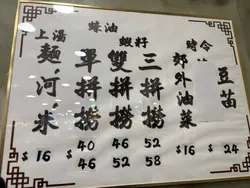 蠔油
上湯
蝦籽
時令
麵、河、米
單拼撈
雙拼撈
三拼撈
郊外油菜
豆苗
$16
$40 52 52 $16 $24
46 52 58